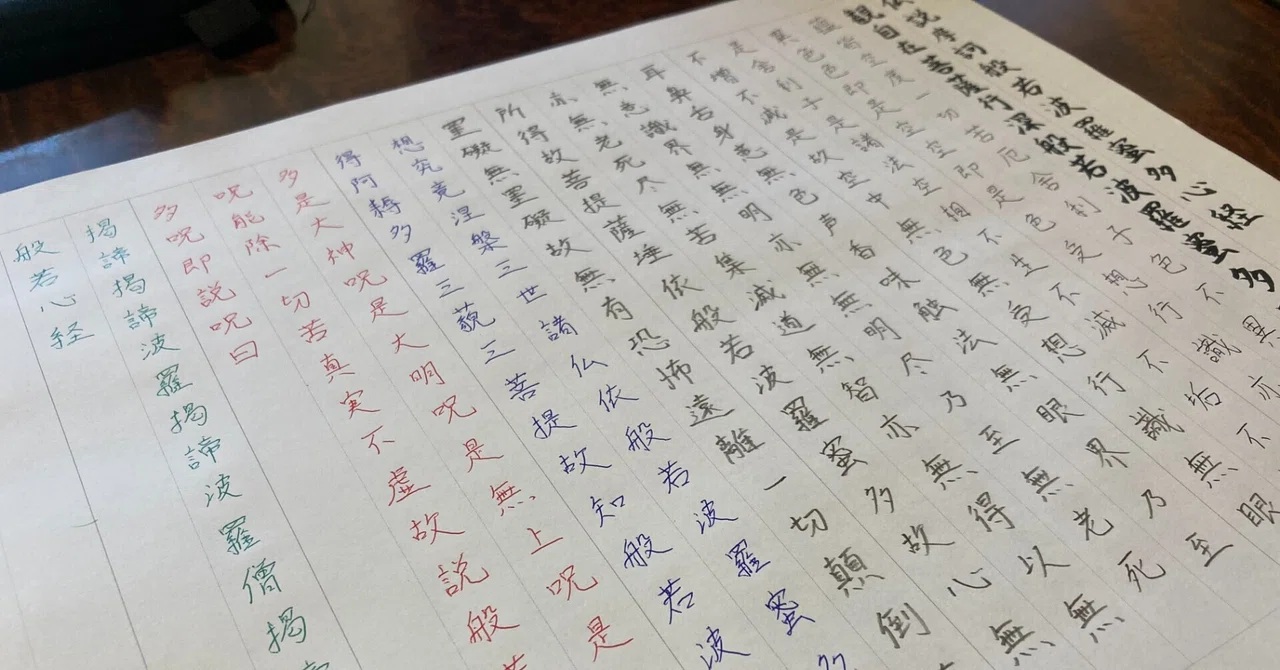 仏説摩訶般若波羅蜜多心経
観自在菩薩行深般若波羅蜜多
蘊皆空度一切苦厄舎利子色不異
異色色即是空空即是色受想行識亦
是舎利子是諸法空相不生不滅不垢不
不増不減是故空中無色無受想行識無眼
耳鼻舌身意無色声香味触法無眼界乃至
無意識界無無明亦無無明尽乃至無老死
亦無老死尽無苦集滅道無智亦無得以無
所得故菩提薩埵依般若波羅蜜多故心無
罣礙無罣礙故無有恐怖遠離一切顛倒
想究竟涅槃三世諸仏依般若波羅蜜多
得阿耨多羅三藐三菩提故知般若波
多是大神呪是大明呪是無上呪是
呪能除一切苦真実不虚故説般若
多呪即説呪曰
掲諦掲諦波羅掲諦波羅僧掲諦
般若心経